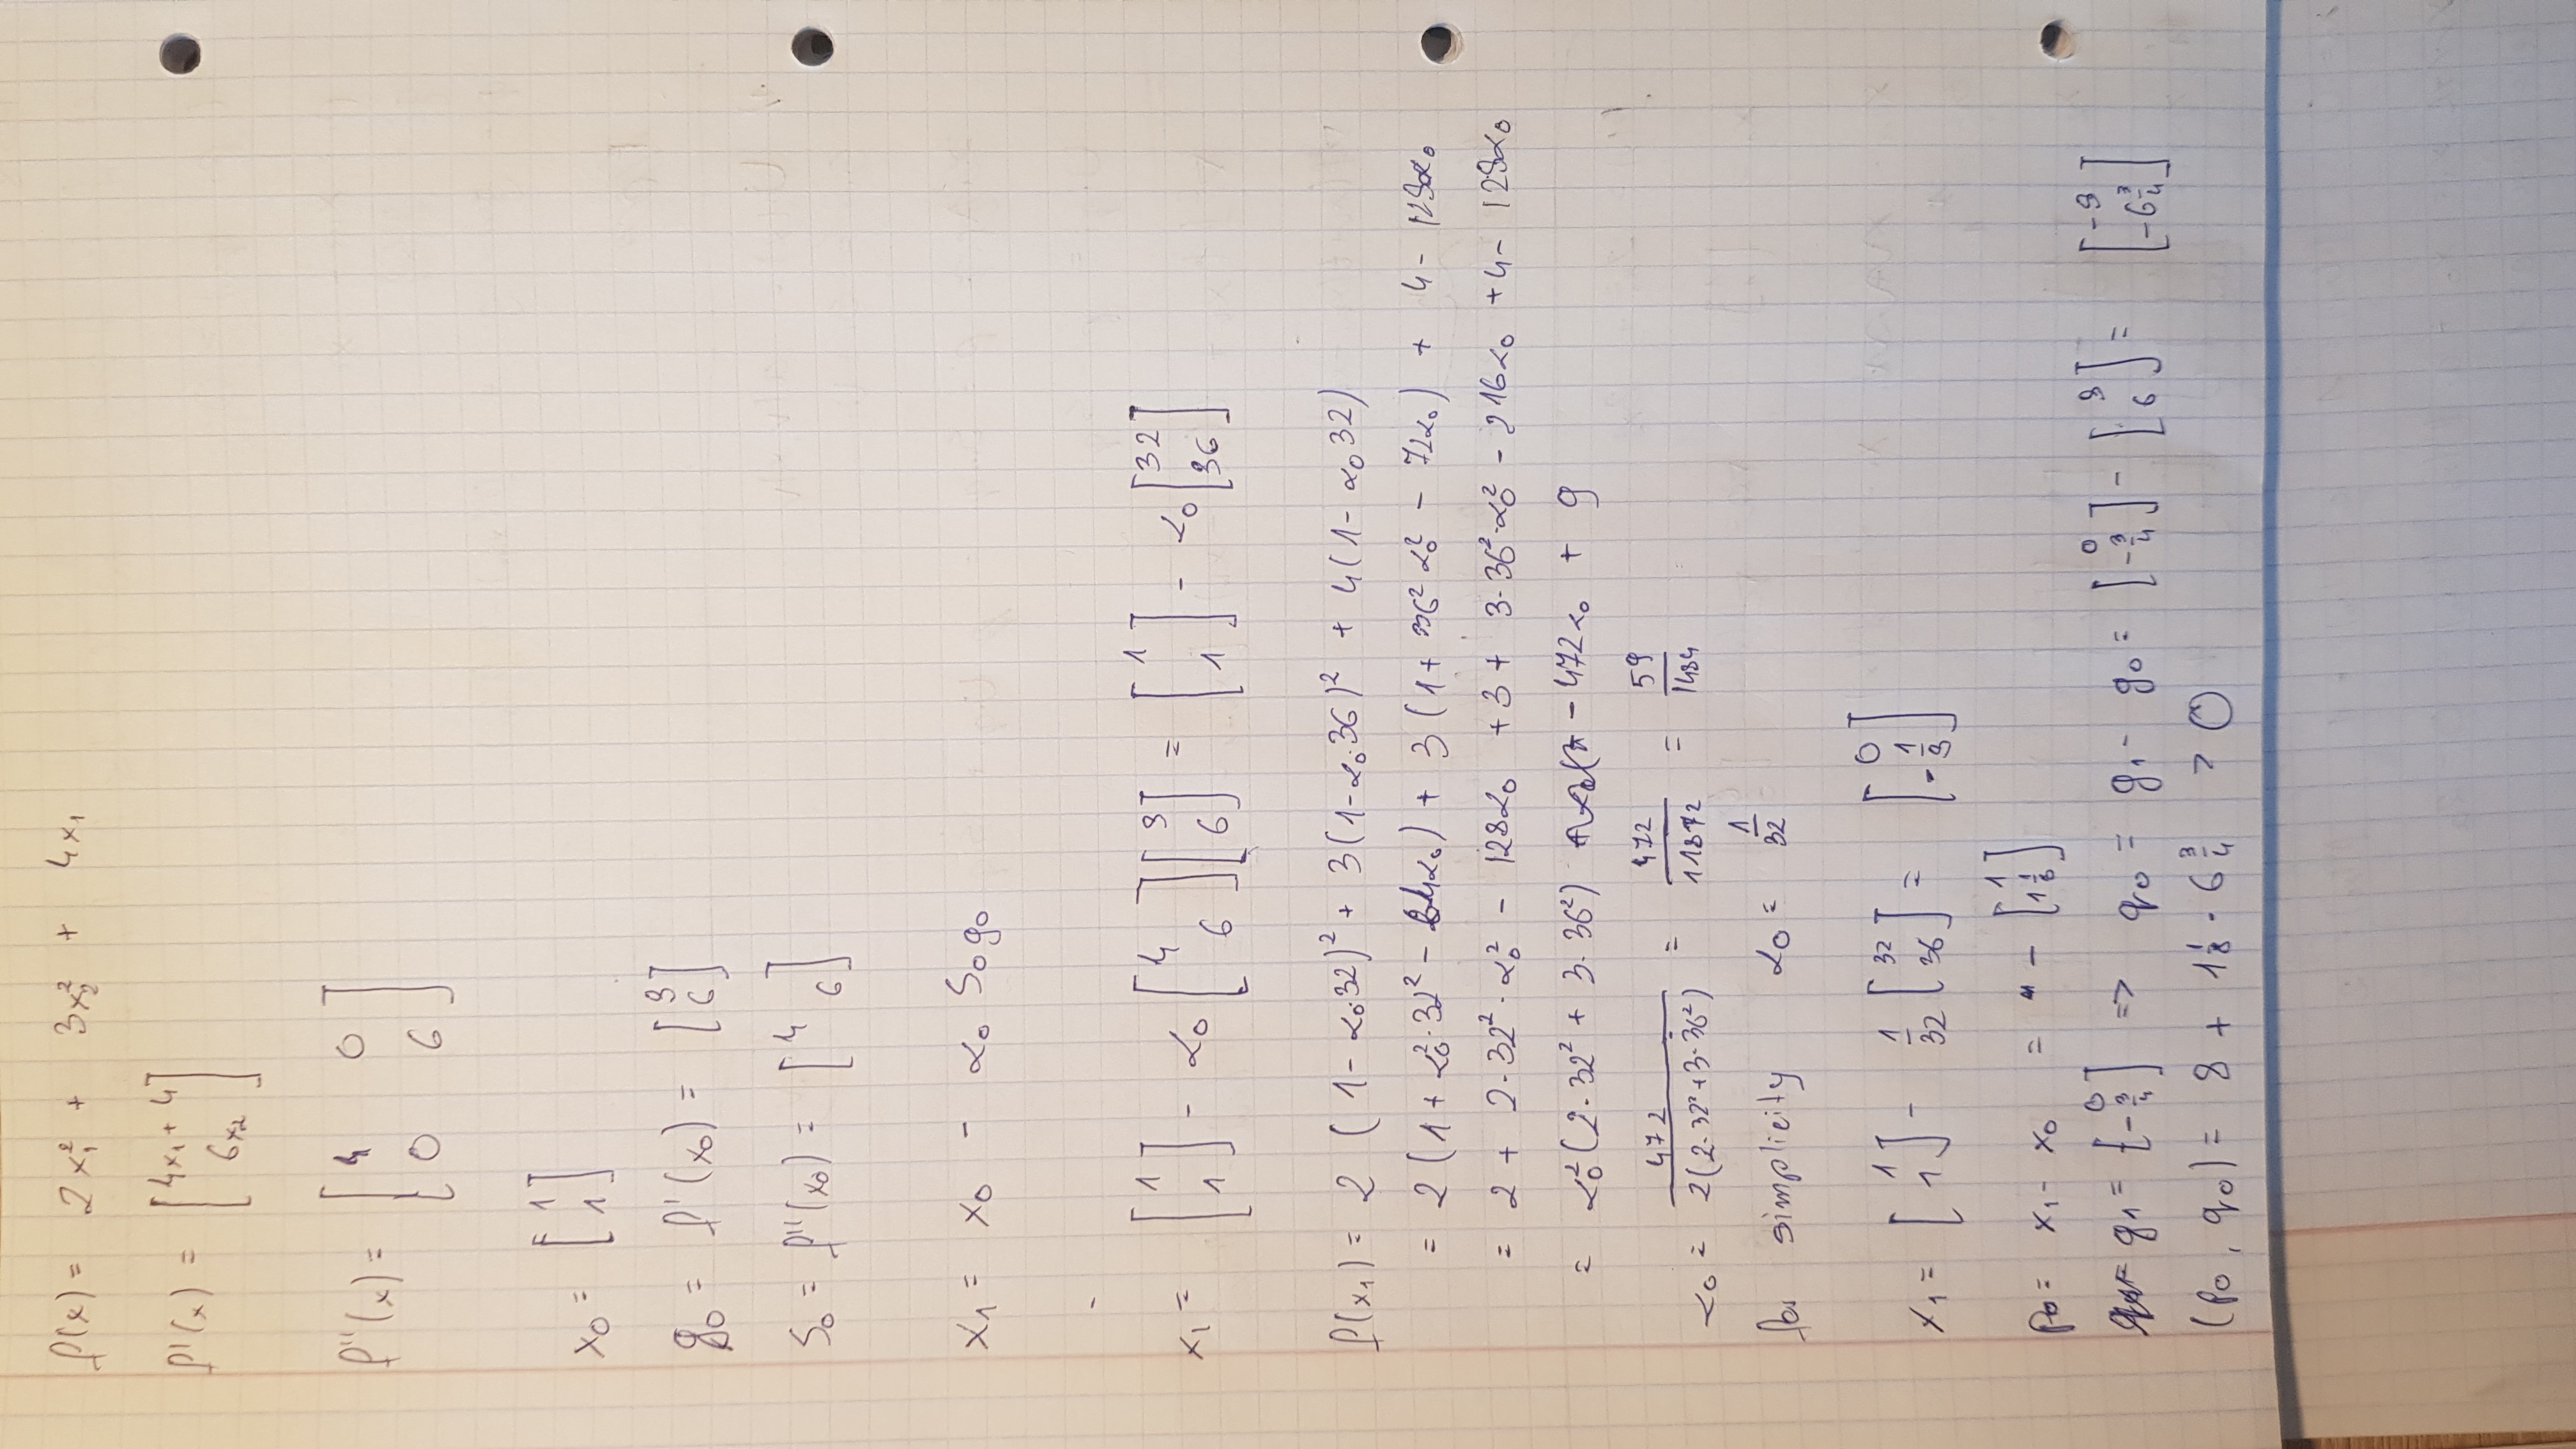 f(x) = 2x₁² + 3x₂² + 4x₁
f'(x) = [4x₁ + 4
6x₂]
f''(x) = [4 0
0 6]
x₀ = [1
1]
g₀ = f'(x₀) = [8
6]
S₀ = f''(x₀) = [4
6]
x₁ = x₀ - α₀ S₀g₀
x₁ = [1 1] - α₀ [4 6] [8 6] = [1 1] - α₀ [32 36]
f(x₁) = 2 (1 - α₀·32)² + 3(1 - α₀·36)² + 4(1 - α₀32)
= 2(1 + α₀²·32² - 64α₀) + 3(1 + 36² α₀² - 72α₀) + 4 - 128α₀
= 2 + 2·32²·α₀² - 128α₀ + 3 + 3·36²·α₀² - 216α₀ + 4 - 128α₀
= α₀²(2·32² + 3·36²) - 472α₀ + 9
α₀ = 472/2(2·32² + 3·36²) = 472/11872 = 59/1484
for simplicity α₀ = 1/32
x₁ = [1 1] - 1/32 [32 36] = [0 -1/8]
p₀ = x₁ - x₀ = - [1 1 1/8]
g₁ = [0 -3/4] => q₀ = g₁ - g₀ = [0 -3/4] - [8 6] = [-8 -6 3/4]
(p₀, q₀) = 8 + 1 1/8 · 6 3/4 > 0